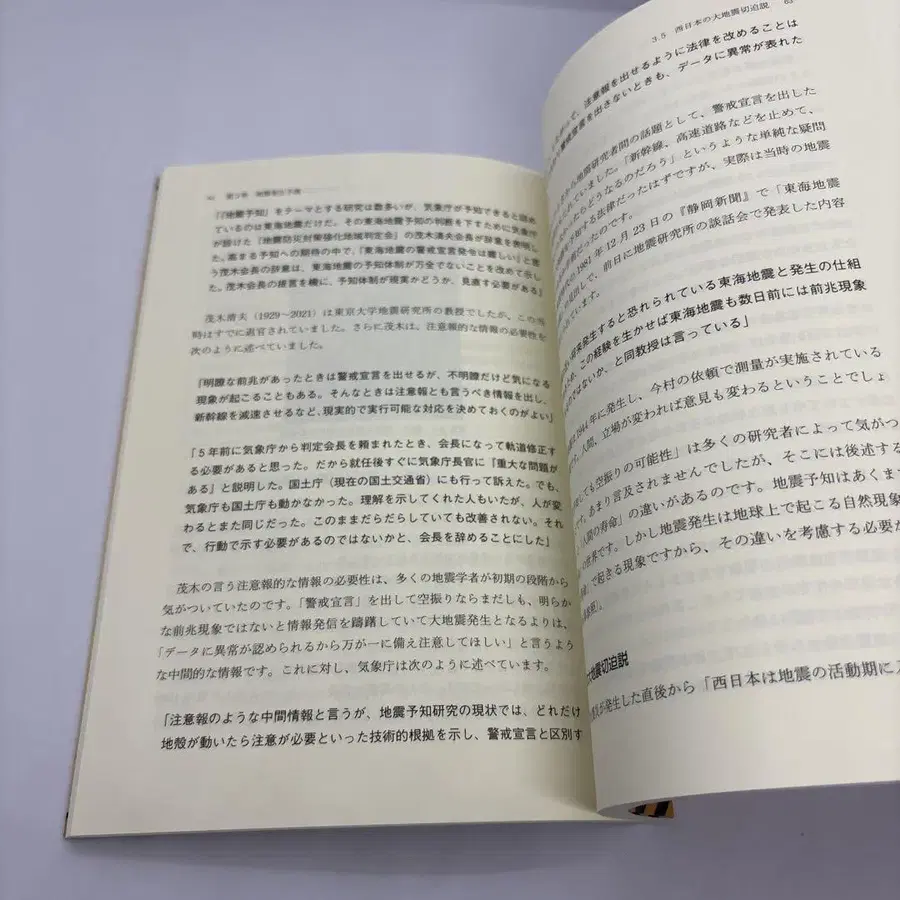 「『地震予知』をテーマとする研究は数多いが、気象庁が予知できると認め
ているのは東海地震だけだ。その東海地震予知の判断を下すために気象庁
が設けた「地震防災対策強化地域判定会」の茂木清夫会長が辞意を表明し
た。高まる予知への期待の中で、「東海地震の警戒宣言発令は難しい」と言
う茂木会長の辞意は、東海地震の予知体制が万全でないことを改めて示し
た。茂木会長の提言を機に、予知体制が現実かどうか、見直す必要がある」
茂木清夫（1929〜2021）は東京大学地震研究所の教授でしたが、この当
時はすでに退官されていました。さらに茂木は、注意報的な情報の必要性を
次のように述べていました。
「明瞭な前兆があったときは警戒宣言を出せるが、不明瞭だけど気になる
現象が起こることもある。そんなときは注意報とも言うべき情報を出し、
新幹線を減速させるなど、現実的で実行可能な対応を決めておくのがよい」
「5年前に気象庁から判定会長を頼まれたとき、会長になって軌道修正す
る必要があると思った。だから就任後すぐに気象庁長官に『重大な問題が
ある』と説明した。国土庁（現在の国土交通省）にも行って訴えた。でも、
気象庁も国土庁も動かなかった。理解を示してくれた人もいたが、人が変
わるとまた同じだった。このままだらだらしていても改善されない。それ
で、行動で示す必要があるのではないかと、会長を辞めることにした」
茂木の言う注意報的な情報の必要性は、多くの地震学者が初期の段階から
気がついていたのです。「警戒宣言」を出して空振りならまだしも、明らか
な前兆現象ではないと情報発信を躊躇していて大地震発生となるよりは、
「データに異常が認められるから万が一に備え注意してほしい」と言うよう
な中間的な情報です。これに対し、気象庁は次のように述べています。
「注意報のような中間情報と言うが、地震予知研究の現状では、どれだけ
地殻が動いたら注意が必要といった技術的根拠を示し、警戒宣言と区別す
3.5 西日本の大地震切迫説
、注意報を出せるように法律を改めることは
警戒宣言を出さないときも、データに異常が表れた
から地震研究者間の話題として、警戒宣言を出した
れていました。「新幹線、高速道路などを止めて、
らどうなるのだろう」というような単純な疑問
を予知する法律だったはずですが、実際は当時の地震
だったのです。
1981年12月23日の『静岡新聞』で「東海地震
見出しで、前日に地震研究所の談話会で発表した内容
ています。
将来発生すると恐れられている東海地震と発生の仕組
ため、この経験を生かせば東海地震も数日前には前兆現象
のではないか、と同教授は言っている」
1944年に発生し、今村の依頼で測量が実施されている
人間、立場が変われば意見も変わるということでしょ
ても空振りの可能性」は多くの研究者によって気がつ
、あまり言及されませんでしたが、そこには後述する
人間の寿命」の違いがあるのです。地震予知はあくま
世界です。しかし地震発生は地球上で起こる自然現象
で起きる現象ですから、その違いを考慮する必要が
大地震切迫説
が発生した直後から「西日本は地震の活動期に入